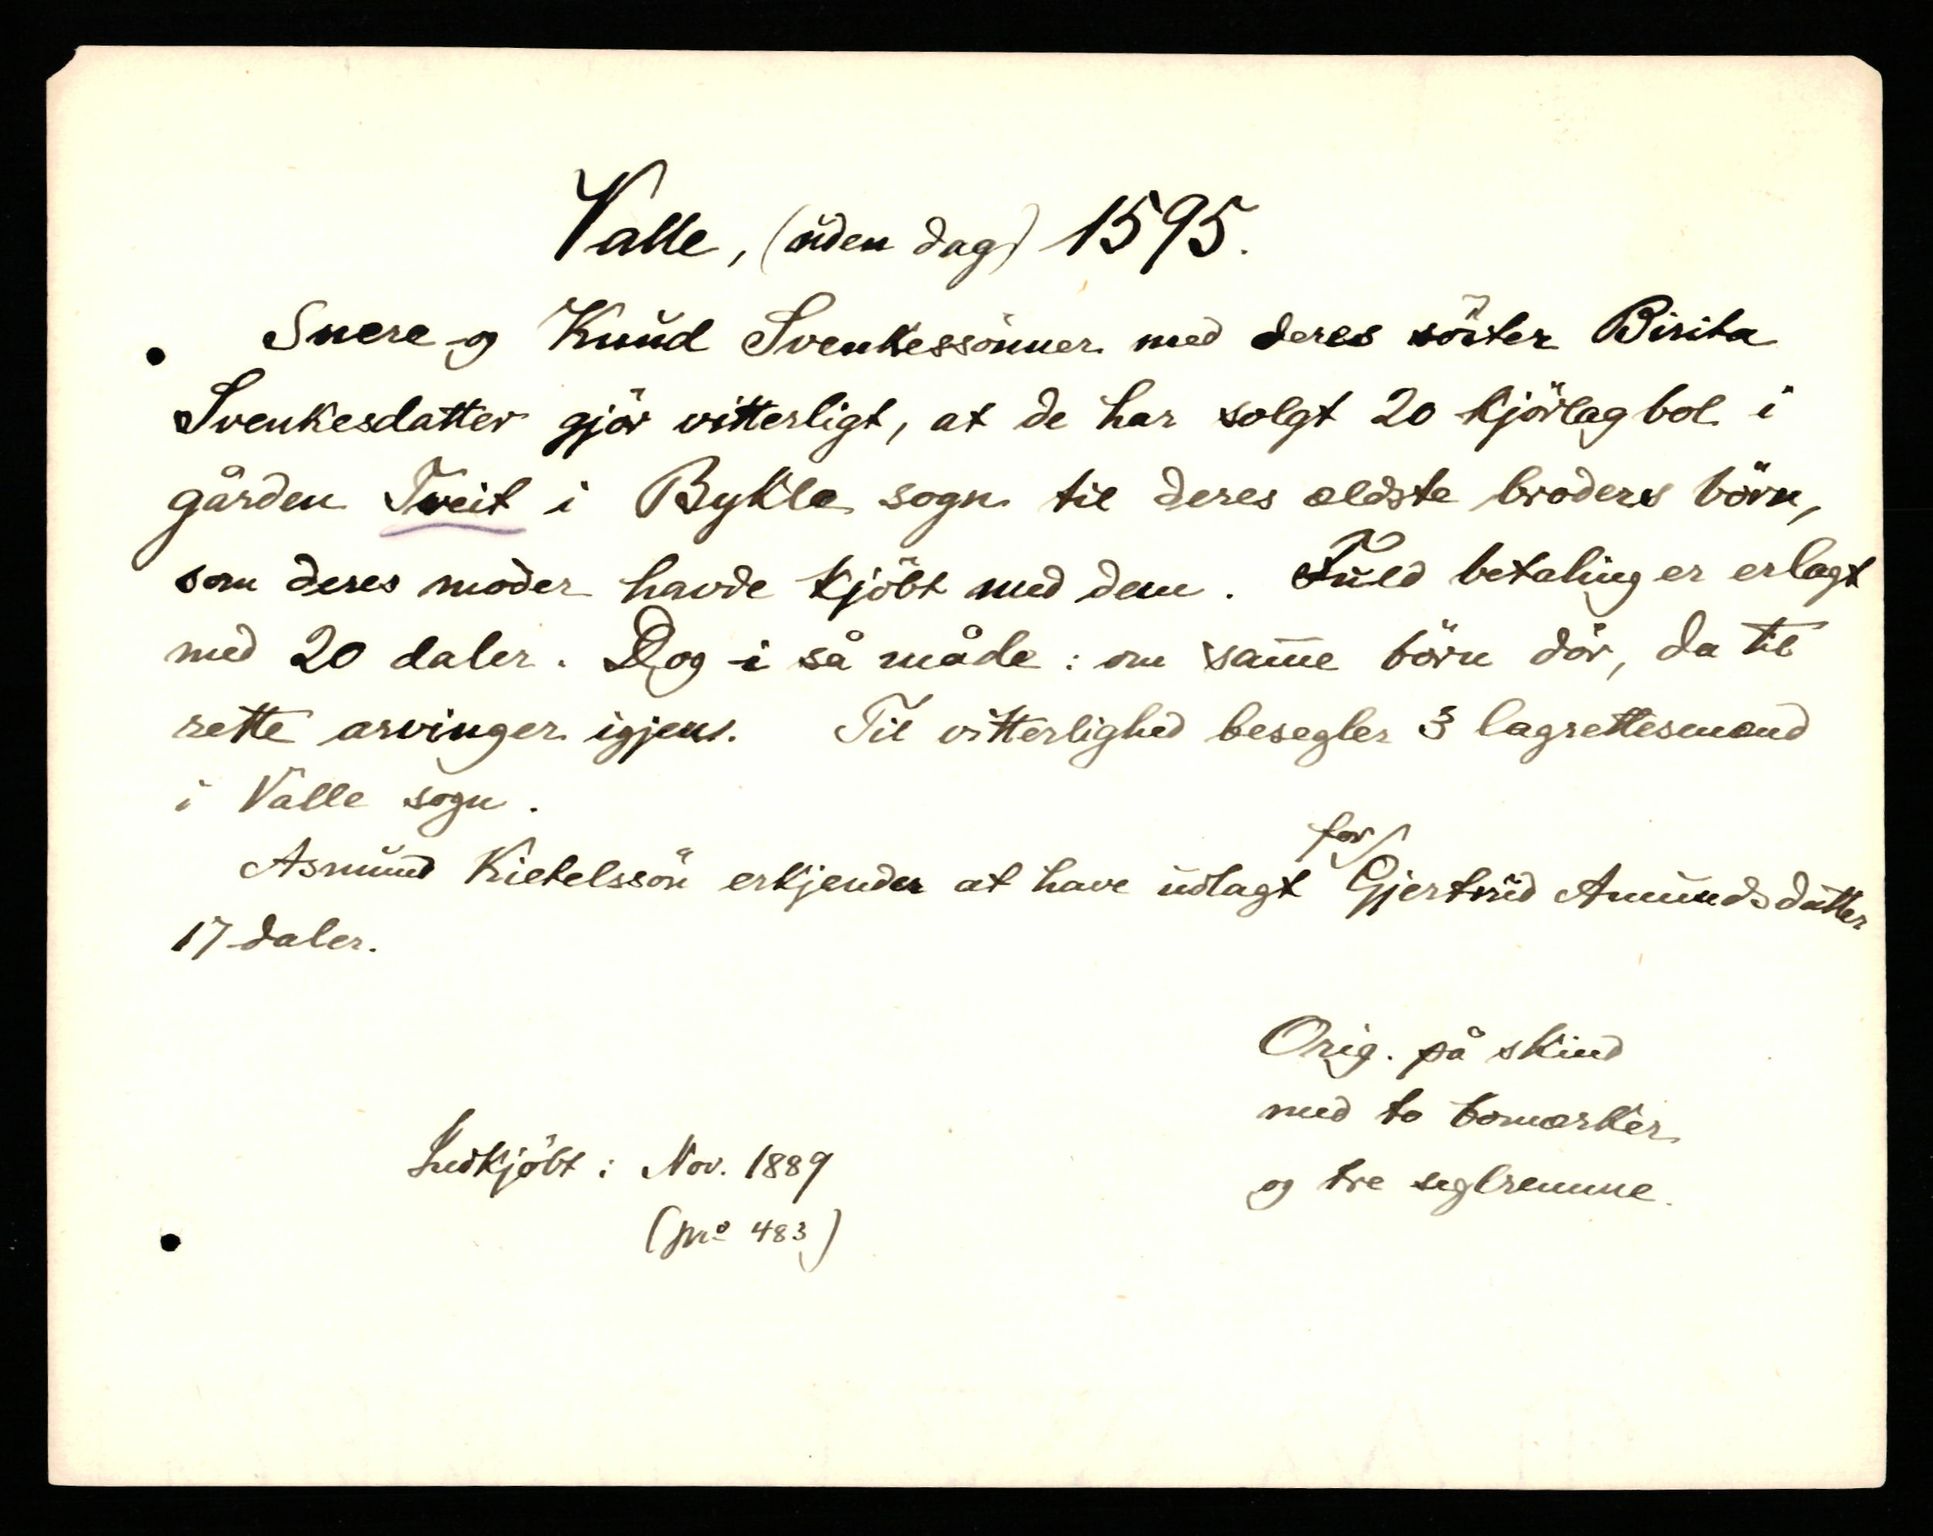 Valle, (uden dag) 1595.
Snere og Knud Svenkessønner med deres söster Birita
Svenkesdatter gjör vitterligt, at de har solgt 20 kjörlag bol i
gården Tveit i Bykle sogn til deres ældste broders börn,
som deres moder havde kjöbt med dem. Fuld betaling er erlagt
med 20 daler. Dog i så måde: om samme börn dör, da til
rette arvinger igjen. Til vitterlighed besegler 3 lagrettesmænd
i Valle sogn.
Asmund Kietelssön erkjender at have udlagt for Gjertrud Amundsdatter
17 daler.
Orig. på skind
med to bomærker
og tre seglremme.
Indkjöbt: Nov. 1889
(pno 483)